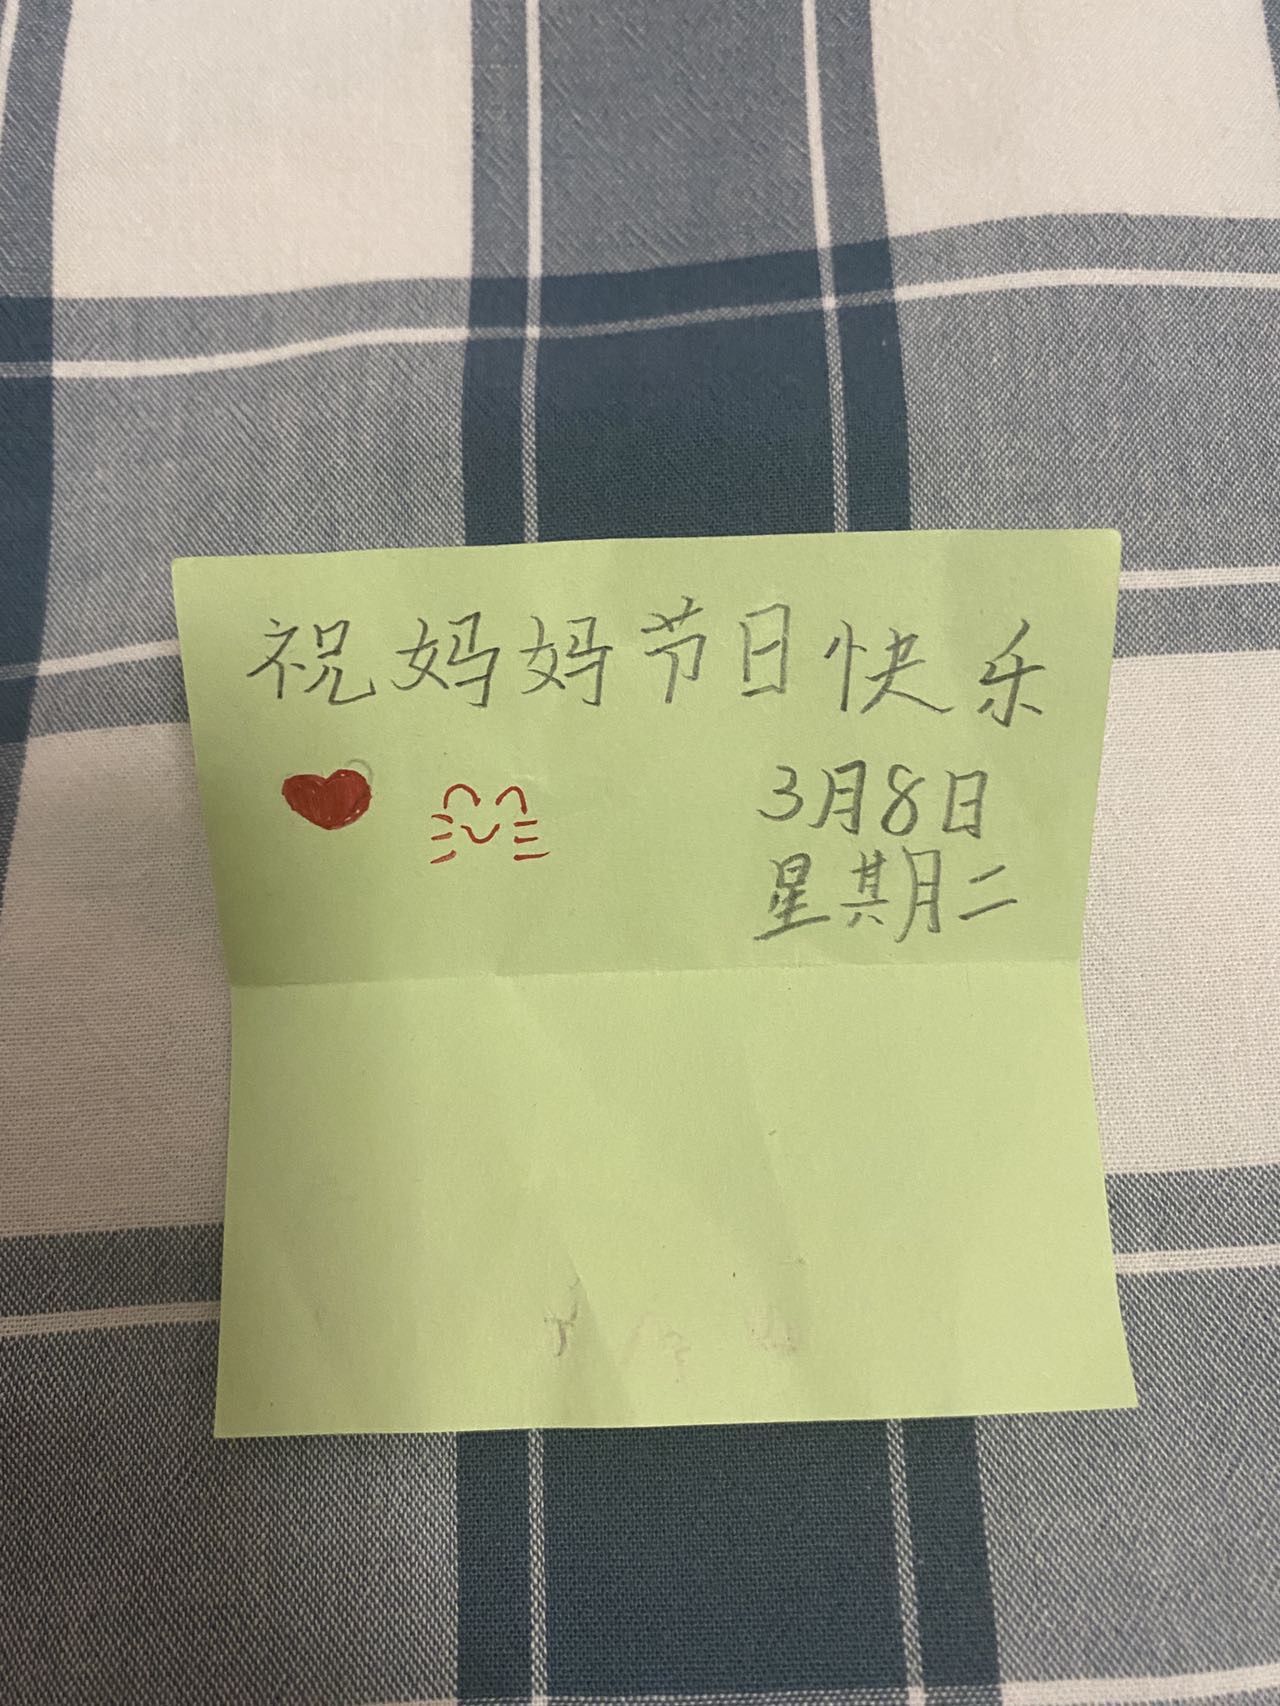 祝妈妈节日快乐
3月8日
星期二